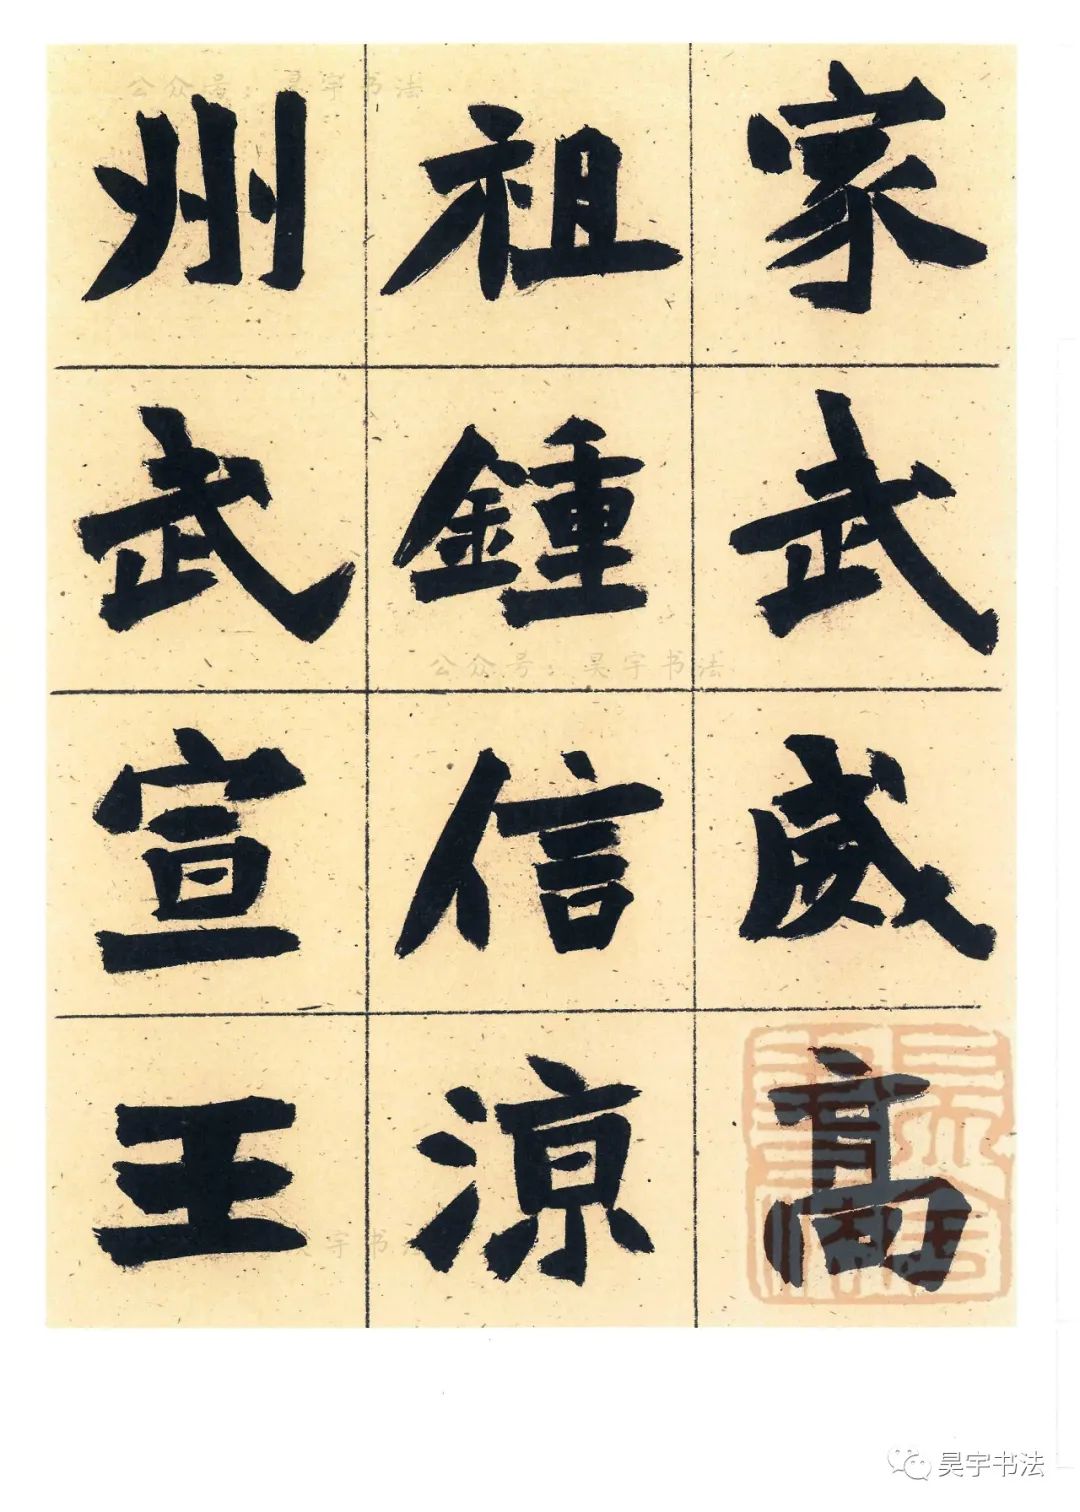 家武威高
祖鍾信涼
州武宣王
公众号：昊宇书法
公众号：昊宇书法
昊宇书法
昊宇书法